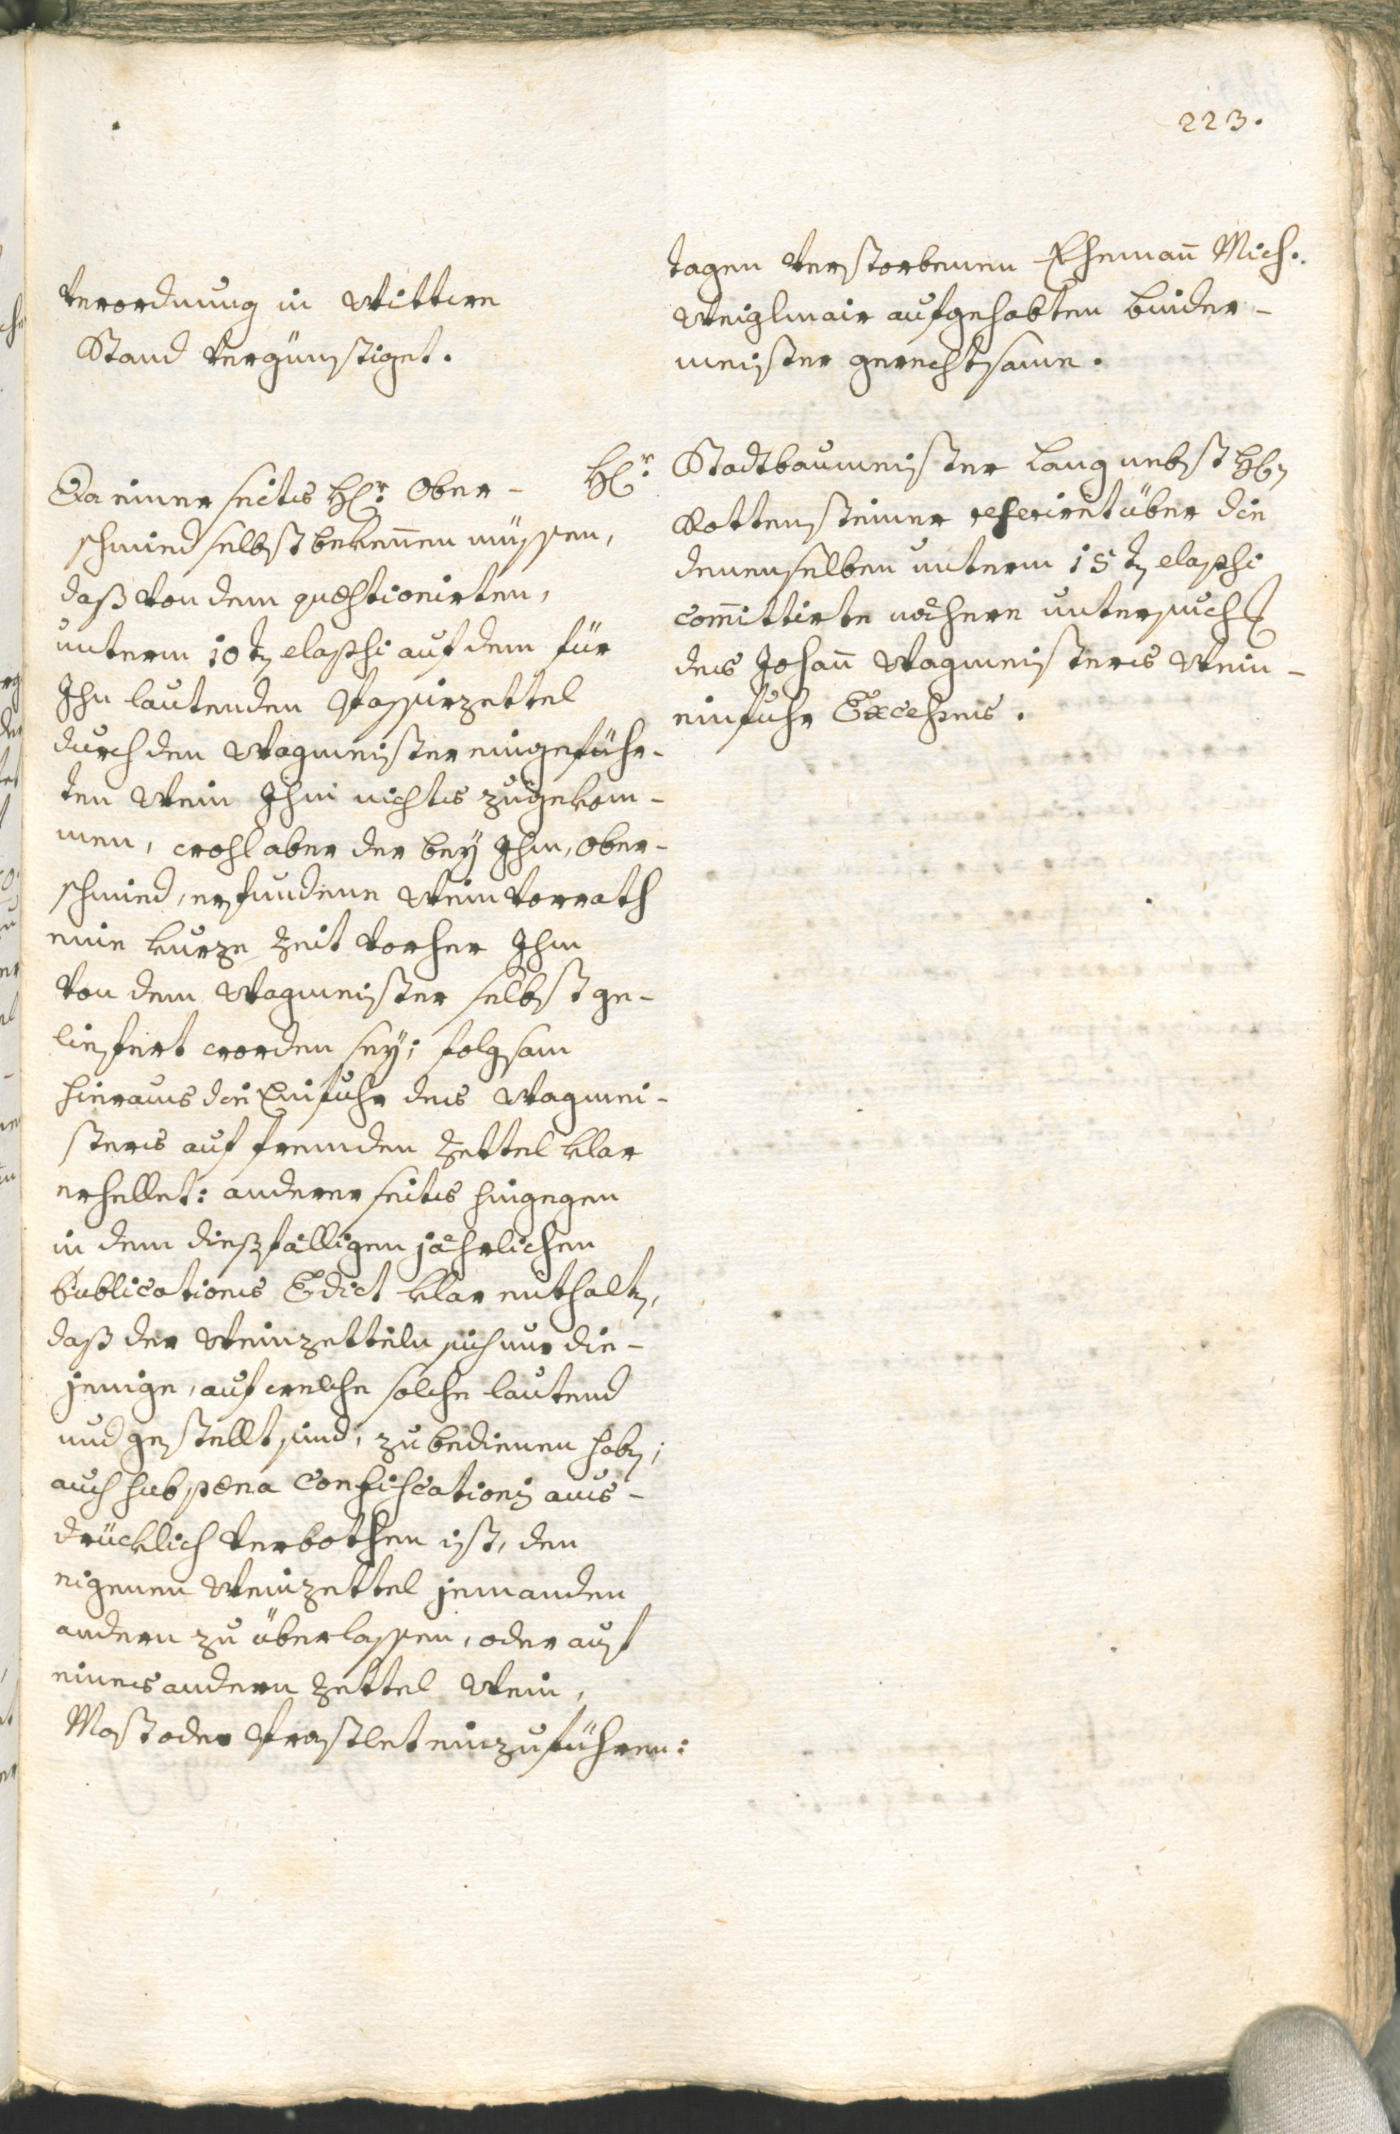 223.
Verordnung in Wittwe
Stand vergünstiget.
Da einer seits H.r Ober-
schmied selbst bekennen müssen,
daß von dem quæstionirten,
unterm 10t. elapsi auf dem für
Ihn lautenden Passirzettel
durch den Wagmeister eingeführ-
ten Wein Ihm nichts zugekom-
men, wohl aber der bey Ihm, Ober-
schmied, erfundene Weinvorrath
eine kurze Zeit vorher Ihm
von dem Wagmeister selbst ge-
liefert worden sey; folgsam
hieraus die Einfuhr des Wagmei-
sters auf fremden Zettel klar
erhellet: anderer seits hingegen
in dem dießfälligen jährlichen
Publications Edict klar enthaltn,
daß der Weinzetteln sich nur die-
jenige, auf welche solche lautend
und gestellt sind, zu bedienen habn;
auch sub pœna Confiscationis aus-
drücklich verbothen ist, den
eigenen Weinzettel jemanden
andern zu überlassen, oder auf
eines andern Zettel Wein,
Most oder Praschlet einzuführen:
tagen verstorbenen Ehemañ Mich.
Weiglmair aufgehabten Binder-
meister gerechtsame.
H.r Stadtbaumeister Lang nebst Hn
Rottensteiner referirt über die
denenselben unterm 15t. elapsi
com̄ittirte nähere untersuchg
des Johañ Wagmeisters Wein-
einfuhr Excesses.